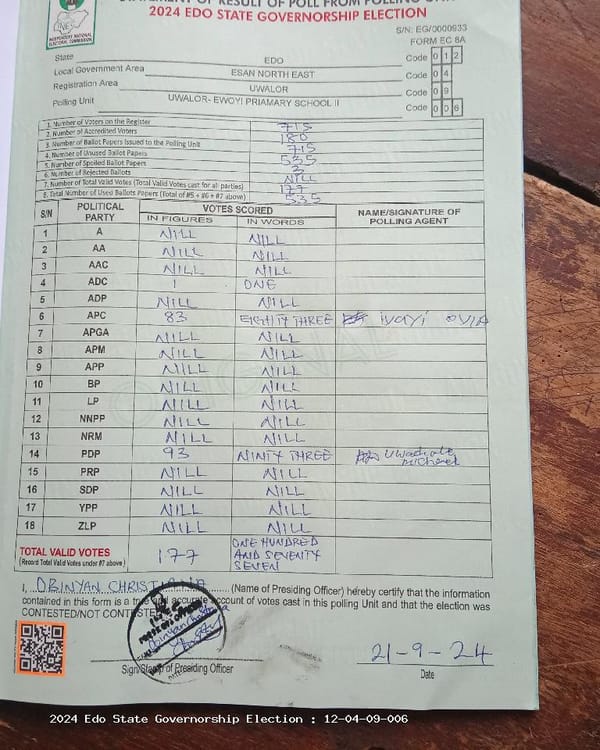 STATEMENT OF RESULT OF POLL FROM POLLING UNIT
2024 EDO STATE GOVERNORSHIP ELECTION
INDEPENDENT NATIONAL
ELECTORAL COMMISSION
S/N: EG/0000933
FORM EC 8A
State EDO Code 0 1 2
Local Government Area ESAN NORTH EAST Code 0 4
Registration Area UWALOR Code 0 9
Polling Unit UWALOR- EWOYI PRIAMARY SCHOOL II Code 0 0 6
1. Number of Voters on the Register 715
2. Number of Accredited Voters 180
3. Number of Ballot Papers Issued to the Polling Unit 715
4. Number of Unused Ballot Papers 535
5. Number of Spoiled Ballot Papers 3
6. Number of Rejected Ballots NILL
7. Number of Total Valid Votes (Total Valid Votes cast for all parties) 177
8. Total Number of Used Ballots Papers (Total of #5 + #6 + #7 above) 535
S/N POLITICAL PARTY VOTES SCORED NAME/SIGNATURE OF POLLING AGENT
IN FIGURES IN WORDS
1 A NILL NILL
2 AA NILL NILL
3 AAC NILL NILL
4 ADC 1 ONE
5 ADP NILL NILL
6 APC 83 EIGHTY THREE iyayi OVIA
7 APGA NILL NILL
8 APM NILL NILL
9 APP NILL NILL
10 BP NILL NILL
11 LP NILL NILL
12 NNPP NILL NILL
13 NRM NILL NILL
14 PDP 93 NINTY THREE Micheal
15 PRP NILL NILL
16 SDP NILL NILL
17 YPP NILL NILL
18 ZLP NILL NILL
TOTAL VALID VOTES 177 ONE HUNDRED AND SEVENTY SEVEN
(Record Total Valid Votes under #7 above)
I, OBINYAN CHRISTIANA (Name of Presiding Officer) hereby certify that the information
contained in this form is a true and accurate account of votes cast in this polling Unit and that the election was
CONTESTED/NOT CONTESTED
Sign/Stamp of Presiding Officer
21-9-24
Date
2024 Edo State Governorship Election : 12-04-09-006